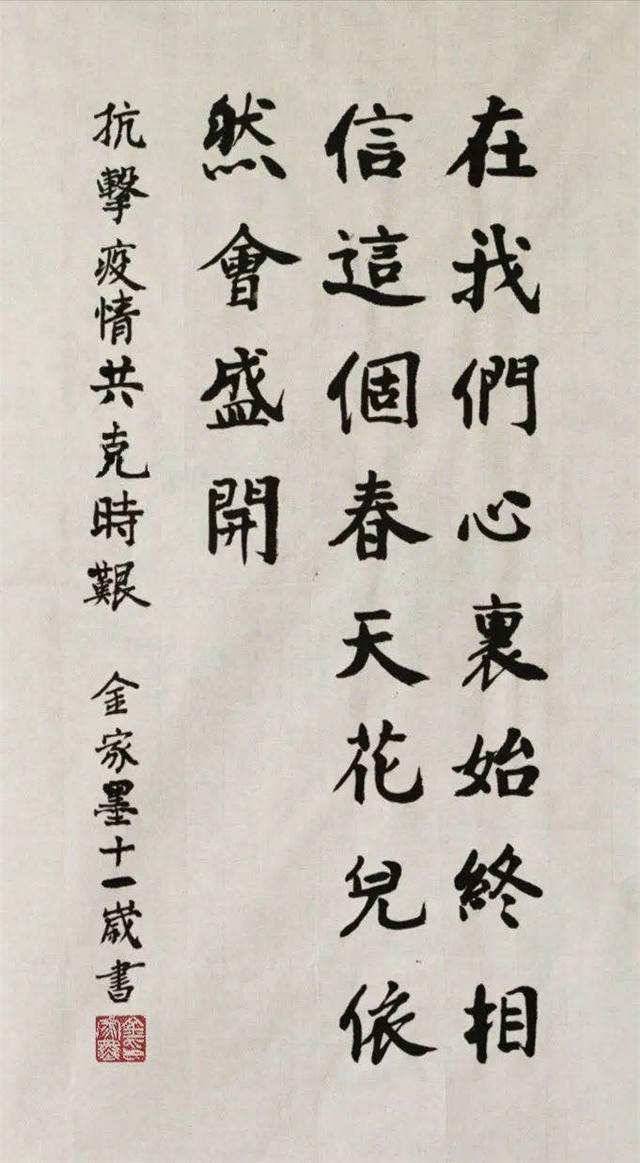 在我們心裏始終相
信這個春天花兒依
然會盛開
抗擊疫情共克時艱 金家墨十一歲書